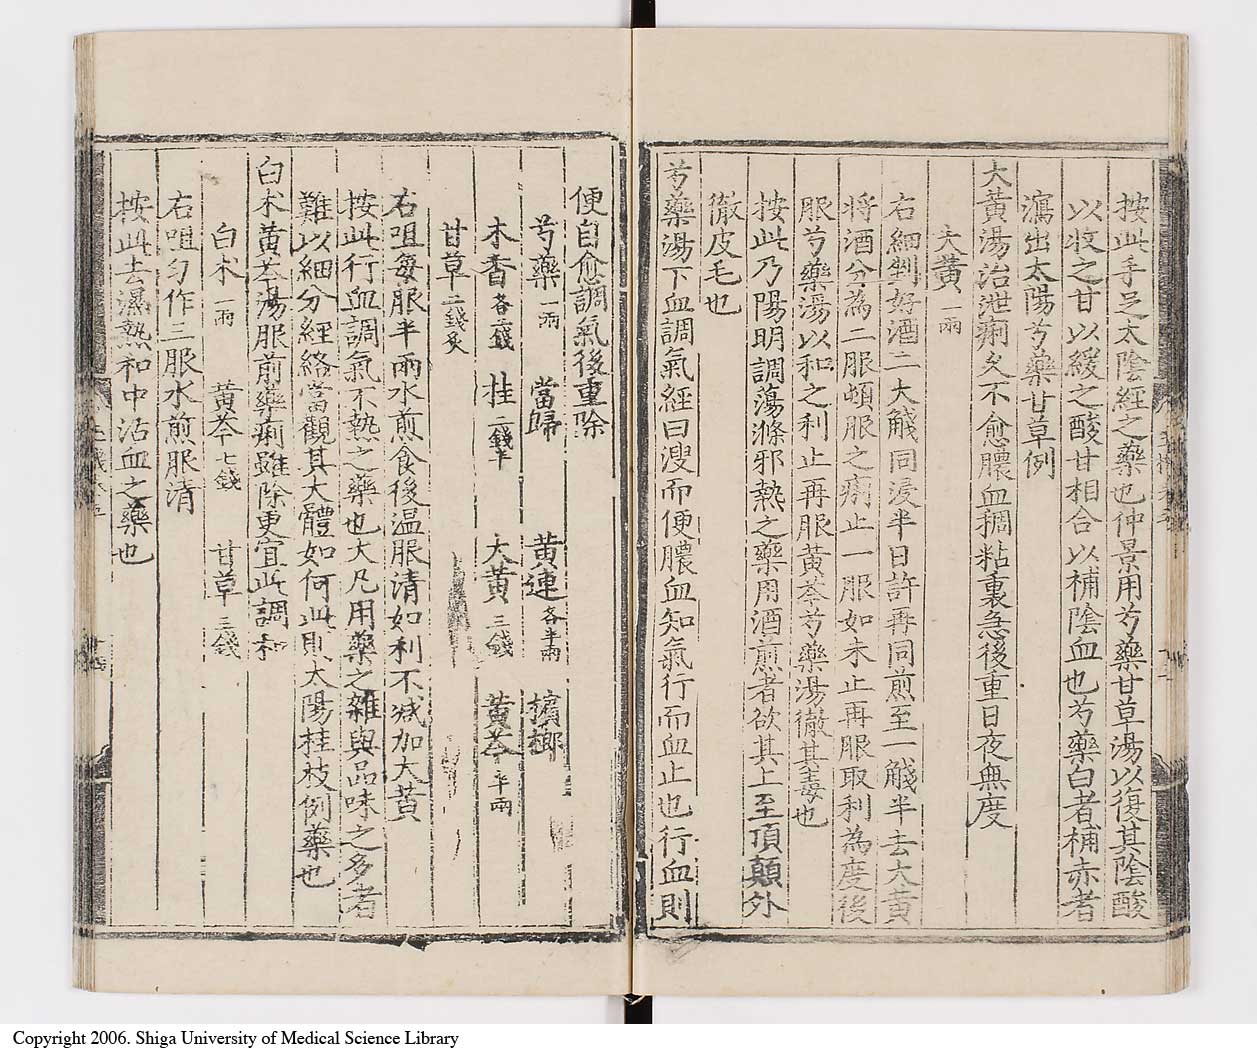 按此手足太陰經之藥也仲景用芍藥甘草湯以復其陰酸
以收之甘以緩之酸甘相合以補陰血也芍藥白者補赤者
瀉出太陽芍藥甘草例
大黃湯治泄痢久不愈膿血稠粘裏急後重日夜無度
大黃一兩
右細剉好酒二大觥同浸半日許再同煎至一觥半去大黃
將酒分為二服頓服之痢止一服如未止再服取利為度後
服芍藥湯以和之利止再服黃芩芍藥湯徹其毒也
按此乃陽明調蕩滌邪熱之藥用酒煎者欲其上至頂顛外
徹皮毛也
芍藥湯下血調氣經曰溲而便膿血知氣行而血止也行血則
便自愈調氣後重除
芍藥一兩 當歸 黃連各半兩 擯榔
木香各二錢 桂二錢半 大黃三錢 黃芩半兩
甘草二錢炙
右咀每服半兩水煎食後温服清如利不減加大黃
按此行血調氣不熱之藥也大凡用藥之雜與品味之多者
難以細分經絡當觀其大體如何此則太陽桂枝例藥也
白朮黃芩湯服前藥痢雖除更宜此調和
白朮一兩 黃芩七錢 甘草三錢
右咀匀作三服水煎服清
按此去濕熱和中沾血之藥也